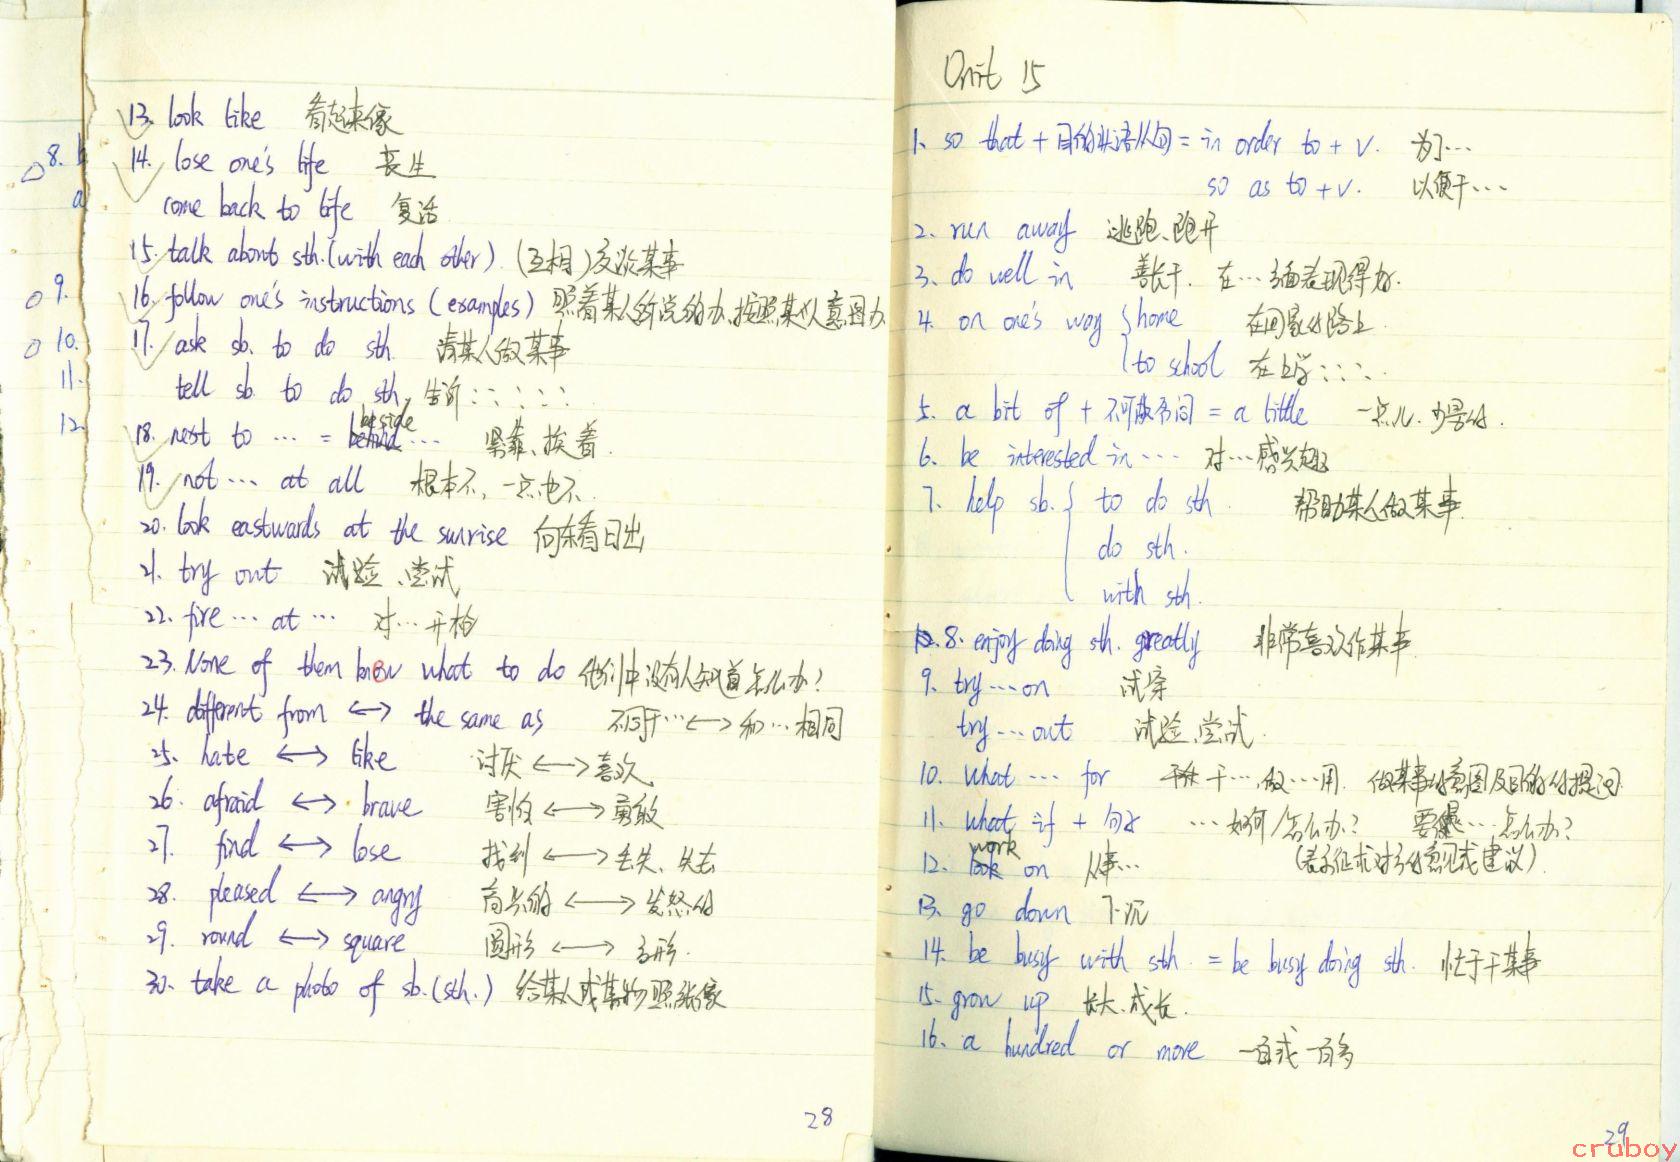 8. b
a
9.
10.
11.
12
13. look like 看起来像
14. lose one's life 丧生
come back to life 复活
15. talk about sth.(with each other) (互相)交谈某事
16. follow one's instructions (examples) 照着某人所说的办、按照某人意图办
17. ask sb. to do sth. 请某人做某事
tell sb. to do sth. 告诉 : : : : :
beside
18. next to ... = behind ... 紧靠、挨着.
19. not ... at all 根本不, 一点也不.
20. look eastwards at the sunrise 向东看日出
21. try out 试验、尝试
22. fire ... at ... 对...开枪
23. None of them know what to do 他们中没有人知道怎么办?
24. different from <-> the same as 不同于...<->和...相同
25. hate <-> like 讨厌<->喜欢
26. afraid <-> brave 害怕<->勇敢
27. find <-> lose 找到<->丢失、失去
28. pleased <-> angry 高兴的<->发怒的
29. round <-> square 圆形<->方形.
30. take a photo of sb.(sth.) 给某人或某物照张像
28
Unit 15
1. so that + 目的状语从句 = in order to + v. 为了...
so as to + v. 以便于...
2. run away 逃跑、跑开
3. do well in 善长于. 在...方面表现得好.
4. on one's way { home 在回家的路上
to school 在上学 : : : .
5. a bit of + 不可数名词 = a little 一点儿. 少量的.
6. be interested in ... 对...感兴趣
7. help sb. { to do sth. 帮助某人做某事
do sth.
with sth.
8. enjoy doing sth. greatly 非常喜欢作某事
9. try ... on 试穿
try ... out 试验、尝试.
10. what ... for 干...做...用. 做某事的意图及目的的提问
11. what if + 句子 ...如何/怎么办? 要是...怎么办?
work
12. look on 从事... (表示征求对方的意见或建议).
13. go down 下沉
14. be busy with sth. = be busy doing sth. 忙于干某事
15. grow up 长大、成长.
16. a hundred or more 一百或一百多
29
cruboy